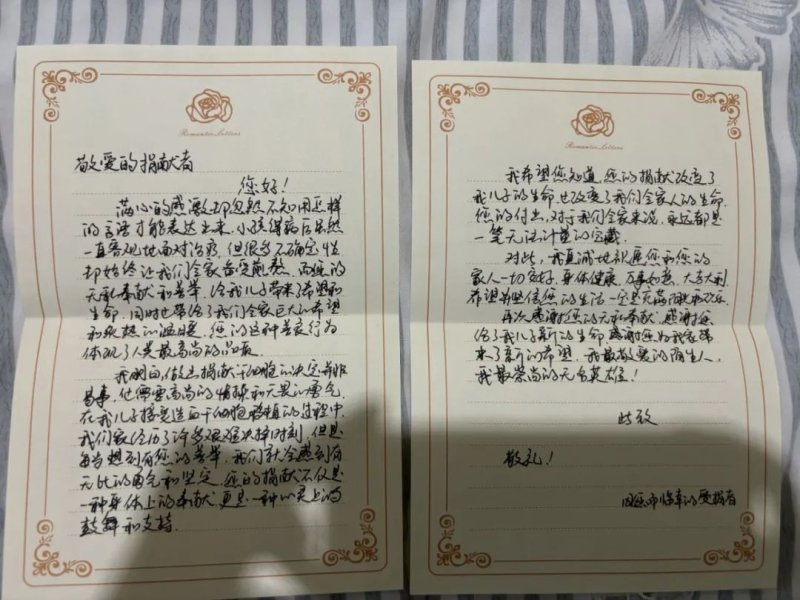 Romantic Letters
敬爱的捐献者
您好！
满心的感激却忽然不知用怎样
的言语才能表达出来。小孩得病后虽然
一直客观地面对治疗，但很多不确定性
却始终让我们全家备受煎熬。而您的
无私奉献和善举，给我儿子带来了希望和
生命，同时也带给了我们全家巨大的希望
和炽热的温暖。您的这种善良行为
体现了人类最高尚的品质。
我明白，做出捐献干细胞的决定并非
易事，它需要高尚的情操和无畏的勇气。
在我儿子接受造血干细胞移植的过程中，
我们家经历了许多艰难决择时刻，但是
每当想到有您的善举，我们就会感到有
无比的勇气和坚定。您的捐献不仅是
一种身体上的奉献，更是一种心灵上的
鼓舞和支持。
Romantic Letters
我希望您知道，您的捐献改变了
我儿子的生命，也改变了我们全家人的生命。
您的付出，对于我们全家来说，永远都是
一笔无法计量的宝藏。
对此，我真诚地祝愿您和您的
家人一切安好，身体健康，万事如意，大吉大利
希望并坚信您的生活一定是充满阳光和欢乐
再次感谢您的无私奉献，感谢您
给了我儿子新的生命，感谢您为我家带
来了新的希望，我最敬爱的陌生人，
我最崇尚的无名英雄！
此致
敬礼！
因您而幸的受捐者